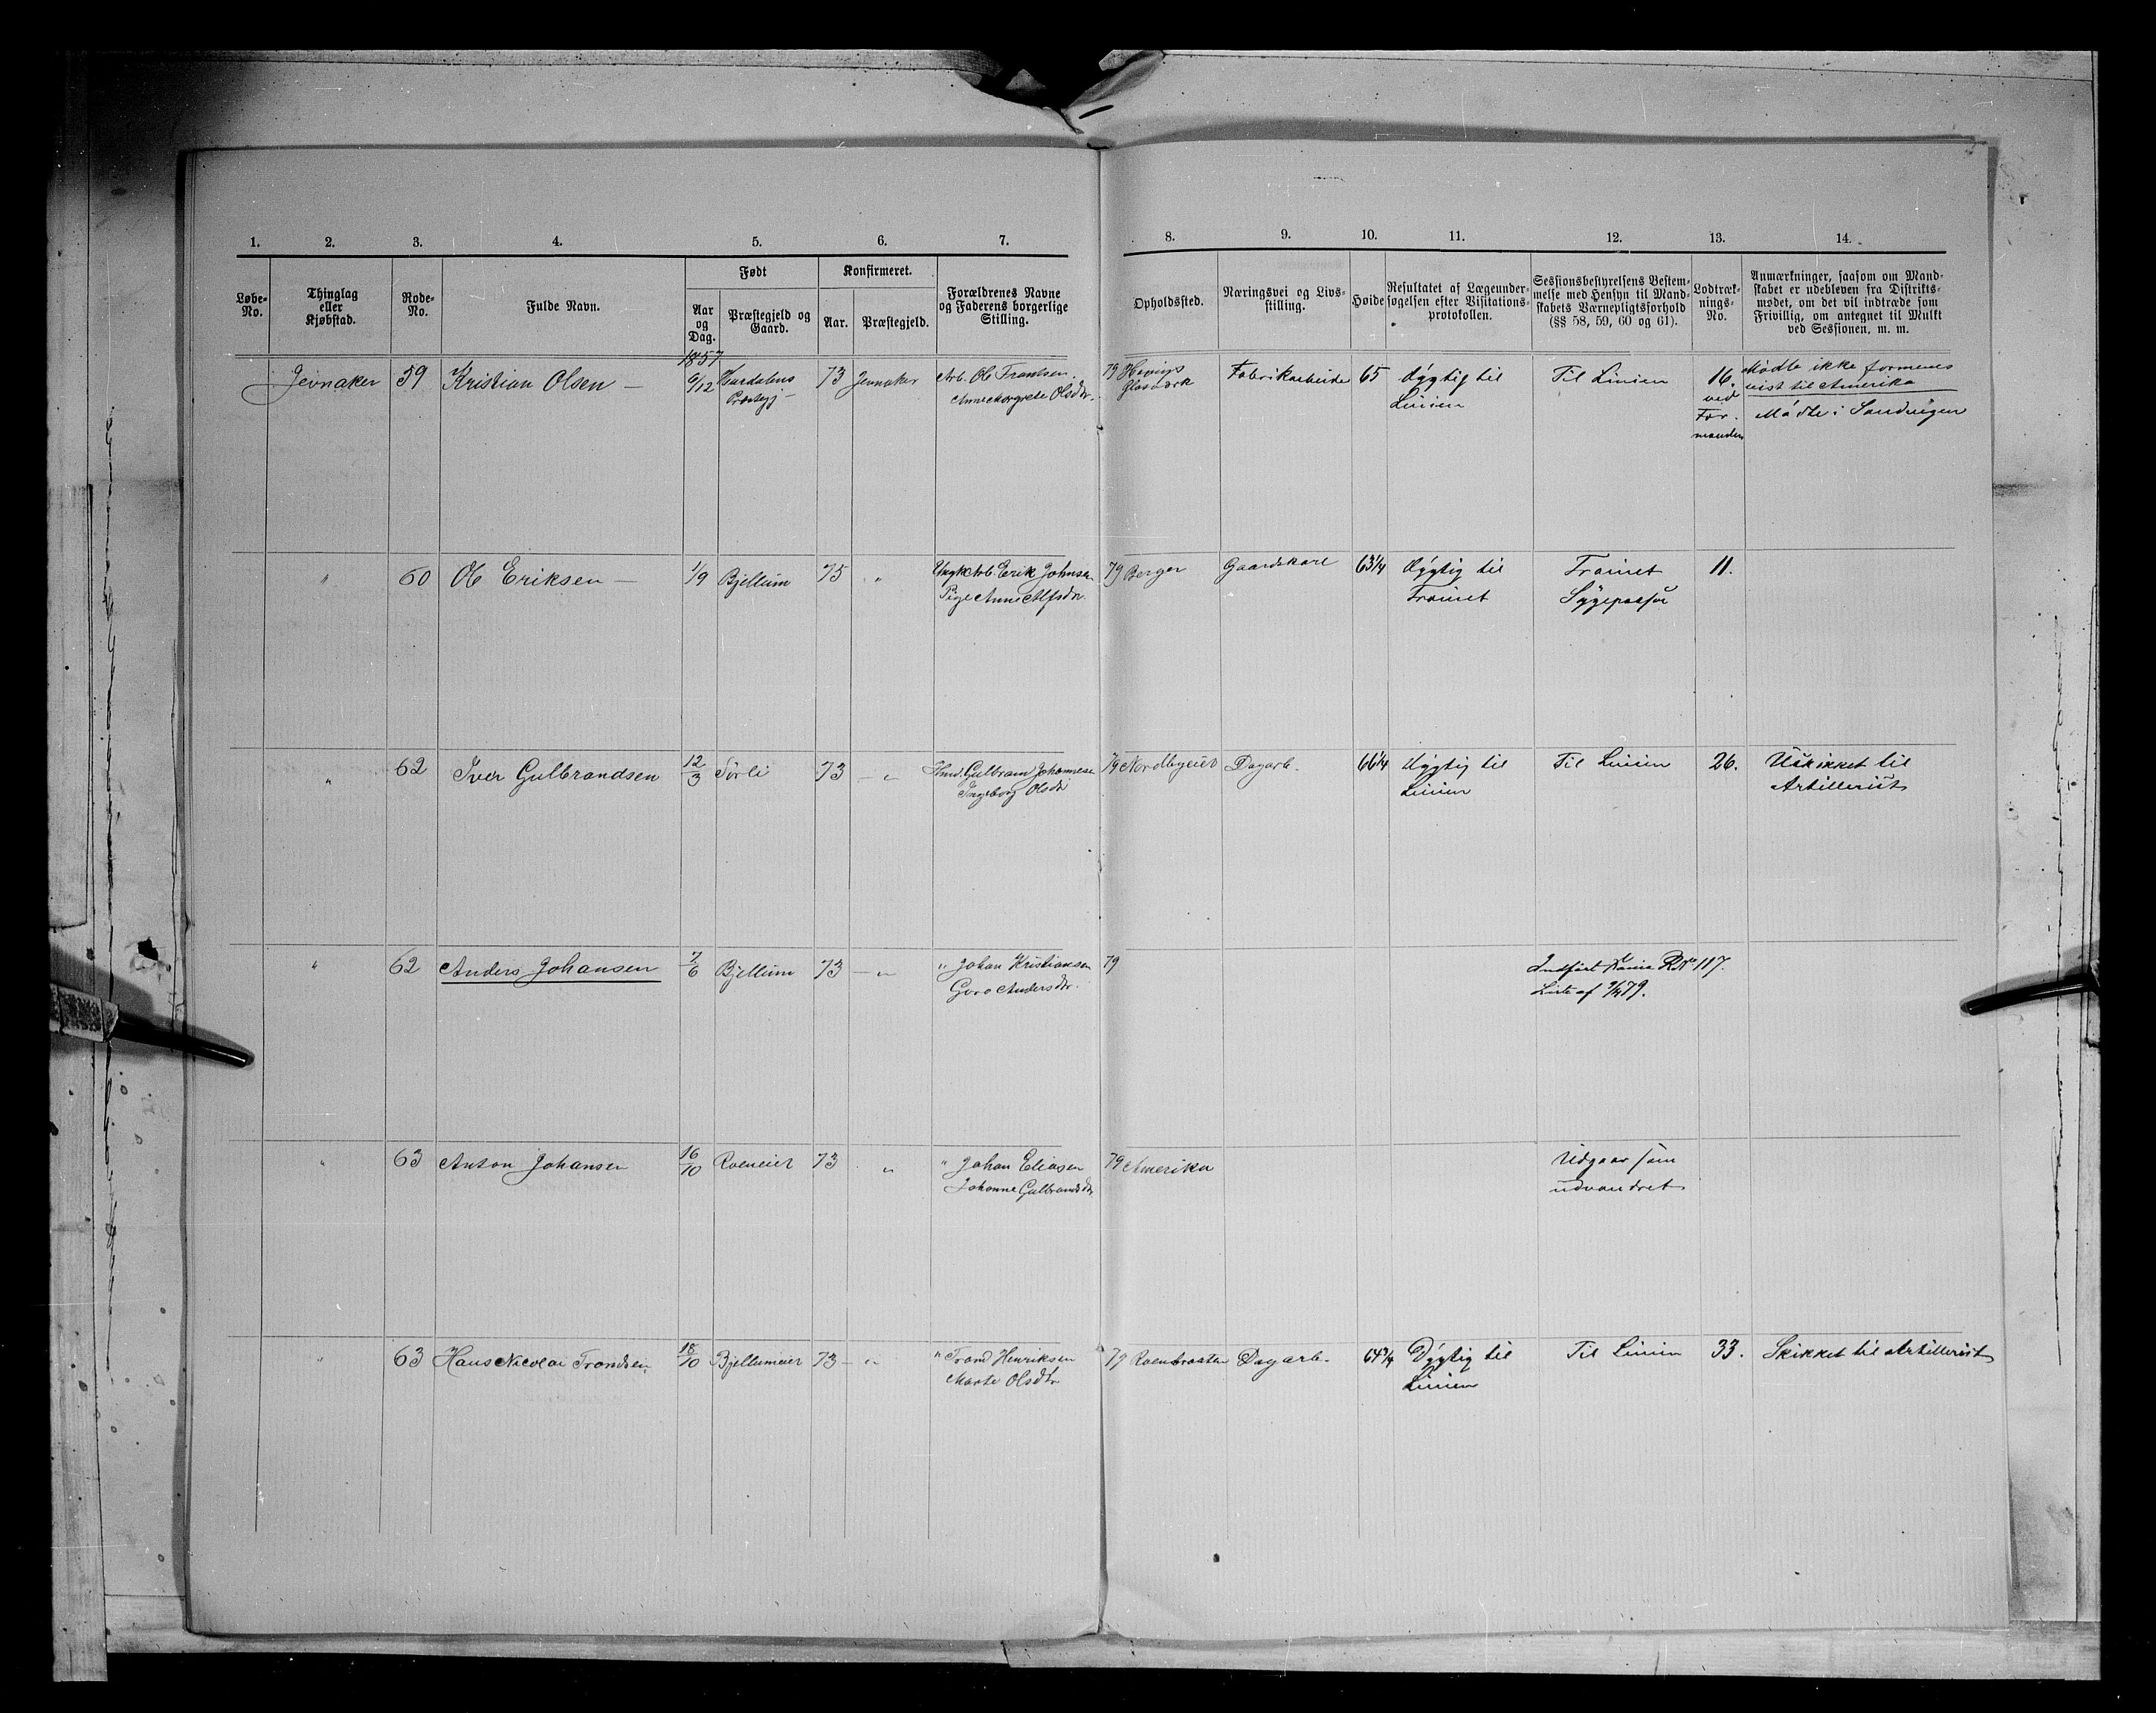 1. 2. 3. 4. 5. 6. 7. 8. 9. 10. 11. 12. 13. 14.
Løbe-No.
Thinglag eller Kjøbstad.
Rode-No.
Fulde Navn.
Født
Aar og Dag.
Præstegjeld og Gaard.
Konfirmeret.
Aar.
Præstegjeld.
Forældrenes Navne og Faderens borgerlige Stilling.
Opholdssted.
Næringsvei og Livsstilling.
Høide
Resultatet af Lægeundersøgelsen efter Visitationsprotokollen.
Sessionsbestyrelsens Bestemmelse med Hensyn til Mandskabets Værnepligtsforhold (§§ 58, 59, 60 og 61).
Lodtræknings-No.
Anmærkninger, saasom om Mandskabet er udebleven fra Distriktsmødet, om det vil indtræde som Frivillig, om antegnet til Mulkt ved Sessionen, m. m.
1857
Jevnaker 59 Kristian Olsen — 6/12 Hurdalens 73 Jevnaker Arb. Ole Frantsen 79 Hovings Fabrikarbeide 65 dygtig til Til Linien 16. Mødte ikke formenes
Præstegj — Anne Margrete Olsdtr. Glasværk Linien ved reist til Amerika
For- Mødte i Sandvigen
manden
" 60 Ole Eriksen — 1/9 Bjellum 75 " Ungk Arb. Erik Johnsen 79 Berger Gaardskarl 63 1/4 dygtig til Trainet 11.
Pige Anne Alfsdtr. Trainet
" 62 Iver Gulbrandsen 12/3 Sørli 73 — " Hmd. Gulbran Johannese 79 Nordbyeiet Dagarb. 66 1/4 dygtig til Til Linien 26. Uskikket til
Ingeborg Olsdtr Linien Artillerist
" 62 Anders Johansen 7/6 Bjellum 73 — " " Johan Kristiansen 79 Indført RNo 117.
Goro Andersdtr. Liste af 79.
" 63 Anton Johansen 16/10 Roeneiet 73 " " Johan Eliasen 79 Amerika Udgaar som
Johanne Gulbrandsdtr udvandret
" 63 Hans Nicolai Trondsen, 18/10 Bjellumeiet 73 — " " Trond Henriksen 79 Roenbraaten Dagarb. 64 3/4 Dygtig til Til Linien 33. Skikket til Artillerist
Marte Olsdtr Linien